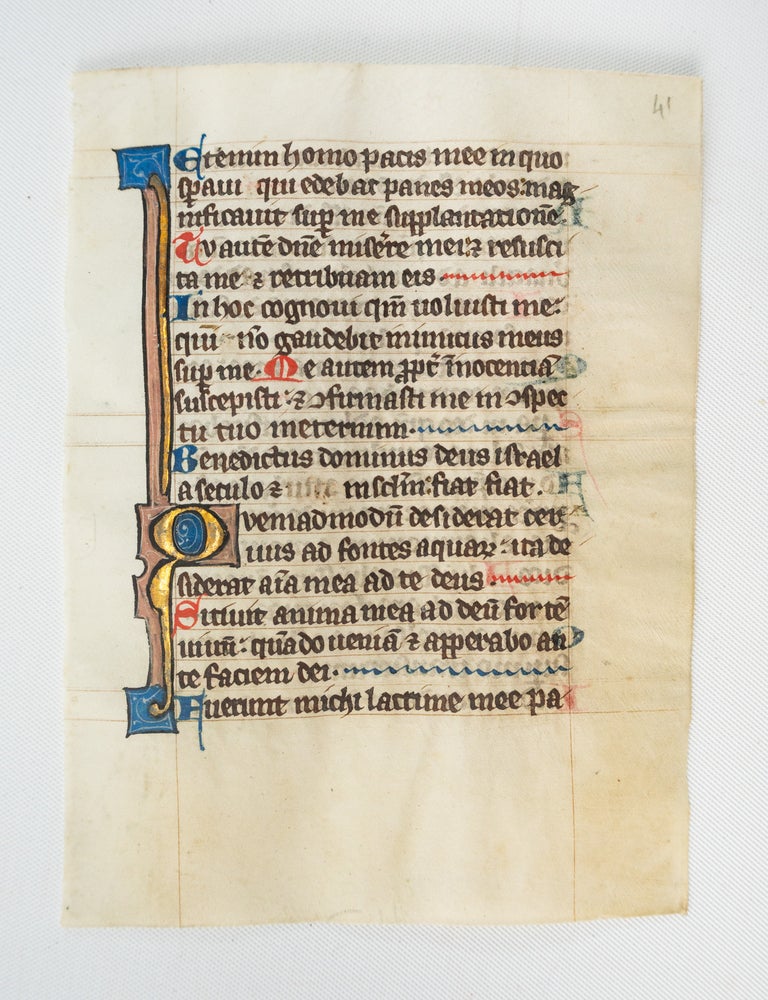 41
Etenim homo pacis mee in quo
sp̄aui qui edebat panes meos: mag
nificauit sup̱ me supplantationē.
Tu autē dn̄e miserere mei ⁊ resusci
ta me ⁊ retribuam eis
In hoc cognoui qm̄ uoluisti me:
qm̄ nō gaudebit inimicus meus
sup̱ me. Me autem ꝓpt̄ īnocentiā
suscepisti: ⁊ ꝯfirmasti me in ꝯspec
tu tuo ineternum.
Benedictus dominus deus israel
a seculo ⁊ in sclm̄: fiat fiat.
Quemadmodū desiderat cer
uus ad fontes aquaꝝ: ita de
siderat aīa mea ad te deus.
Sitiuit anima mea ad deū fortē
uiuū: quādo ueniā ⁊ apparebo an
te faciem dei.
Fuerunt michi lacrime mee pa